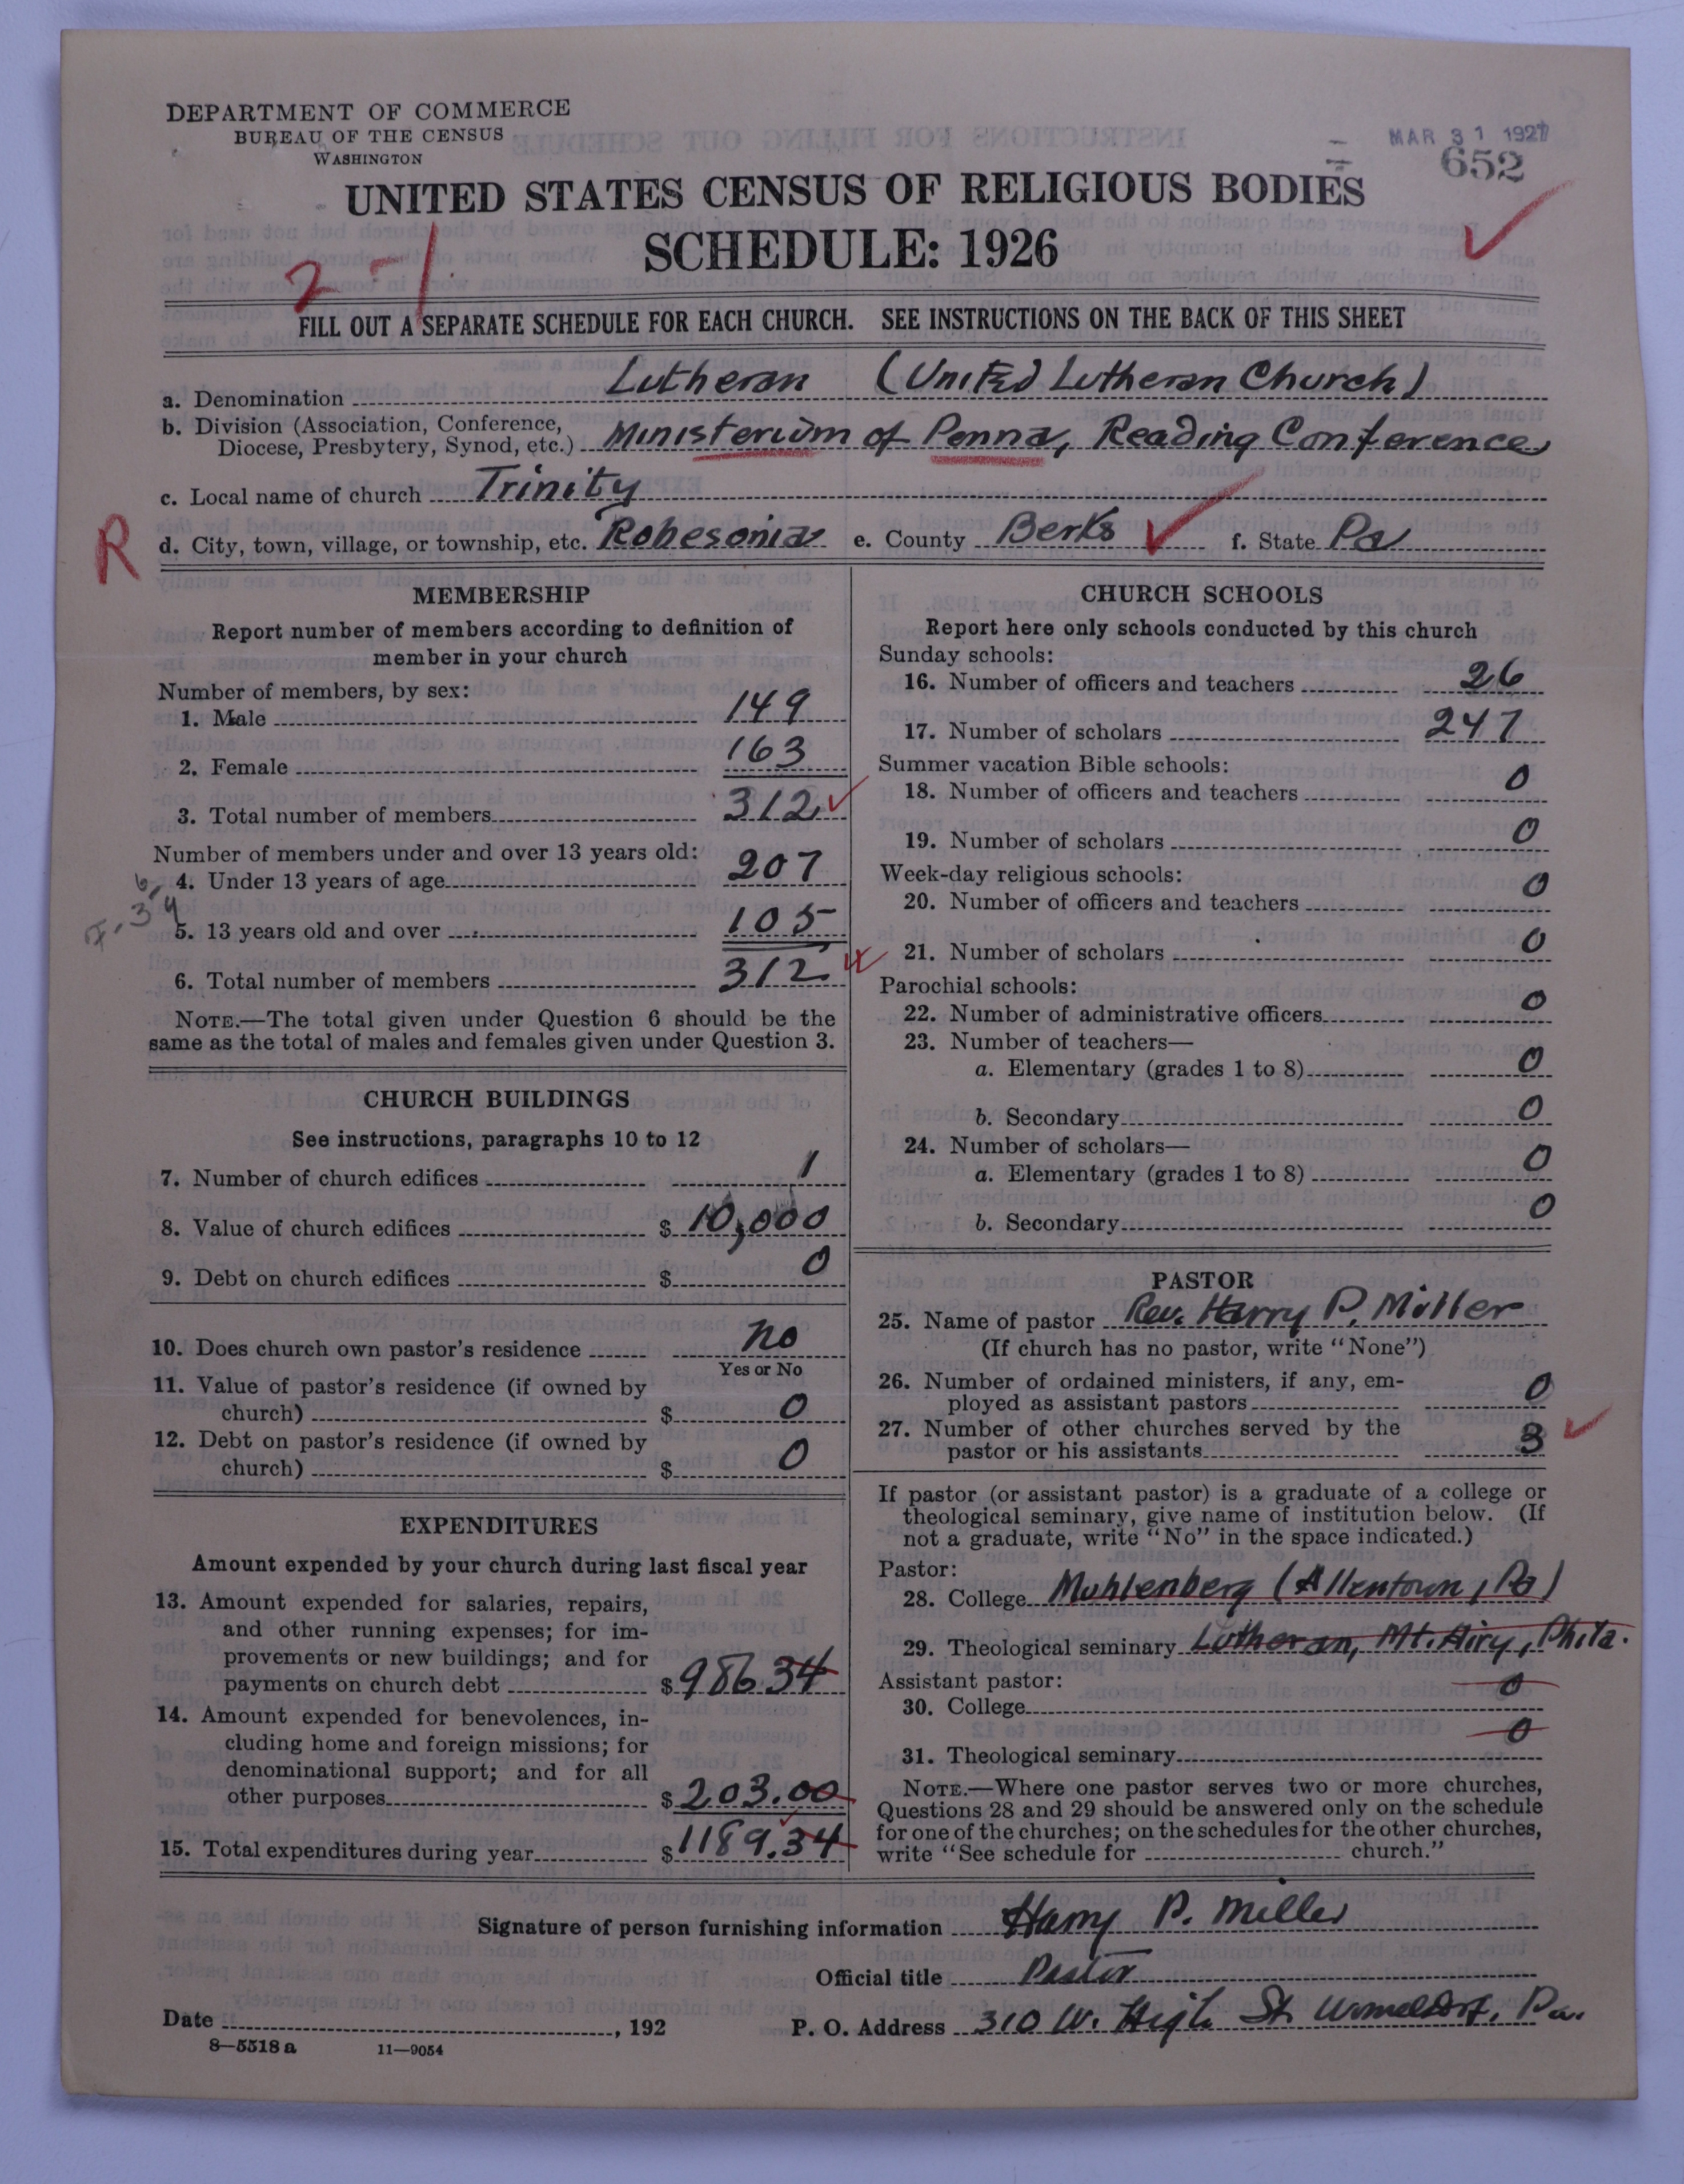 DEPARTMENT OF COMMERCE
BUREAU OF THE CENSUS
WASHINGTON
MAR 31 1927
652
UNITED STATES CENSUS OF RELIGIOUS BODIES
SCHEDULE: 1926
2-1
FILL OUT A SEPARATE SCHEDULE FOR EACH CHURCH. SEE INSTRUCTIONS ON THE BACK OF THIS SHEET
a. Denomination Lutheran (United Lutheran Church)
b. Division (Association, Conference,
Diocese, Presbytery, Synod, etc.) Ministerium of Penna, Reading Conference
c. Local name of church Trinity
R
d. City, town, village, or township, etc. Robesonia e. County Berks f. State Pa
MEMBERSHIP
Report number of members according to definition of
member in your church
Number of members, by sex:
1. Male 149
2. Female 163
3. Total number of members 312
Number of members under and over 13 years old:
4. Under 13 years of age 207
5. 13 years old and over 105
6. Total number of members 312
NOTE.—The total given under Question 6 should be the
same as the total of males and females given under Question 3.
CHURCH BUILDINGS
See instructions, paragraphs 10 to 12
7. Number of church edifices 1
8. Value of church edifices $ 10,000
9. Debt on church edifices $ 0
10. Does church own pastor's residence No
Yes or No
11. Value of pastor's residence (if owned by
church) $ 0
12. Debt on pastor's residence (if owned by
church) $ 0
EXPENDITURES
Amount expended by your church during last fiscal year
13. Amount expended for salaries, repairs,
and other running expenses; for im-
provements or new buildings; and for
payments on church debt $ 986.34
14. Amount expended for benevolences, in-
cluding home and foreign missions; for
denominational support; and for all
other purposes $ 203.00
15. Total expenditures during year $ 1189.34
CHURCH SCHOOLS
Report here only schools conducted by this church
Sunday schools:
16. Number of officers and teachers 26
17. Number of scholars 247
Summer vacation Bible schools:
18. Number of officers and teachers 0
19. Number of scholars 0
Week-day religious schools:
20. Number of officers and teachers 0
21. Number of scholars 0
Parochial schools:
22. Number of administrative officers 0
23. Number of teachers—
a. Elementary (grades 1 to 8) 0
b. Secondary 0
24. Number of scholars—
a. Elementary (grades 1 to 8) 0
b. Secondary 0
PASTOR
25. Name of pastor Rev. Harry P. Miller
(If church has no pastor, write "None")
26. Number of ordained ministers, if any, em-
ployed as assistant pastors 0
27. Number of other churches served by the
pastor or his assistants 3
If pastor (or assistant pastor) is a graduate of a college or
theological seminary, give name of institution below. (If
not a graduate, write "No" in the space indicated.)
Pastor:
28. College Muhlenberg (Allentown, Pa)
29. Theological seminary Lutheran, Mt. Airy, Phila.
Assistant pastor:
30. College 0
31. Theological seminary 0
NOTE.—Where one pastor serves two or more churches,
Questions 28 and 29 should be answered only on the schedule
for one of the churches; on the schedules for the other churches,
write "See schedule for church."
Signature of person furnishing information Harry P. Miller
Official title Pastor
Date , 192
P. O. Address 310 W. High St. Womelsdorf, Pa.
8—5518 a 11—9054